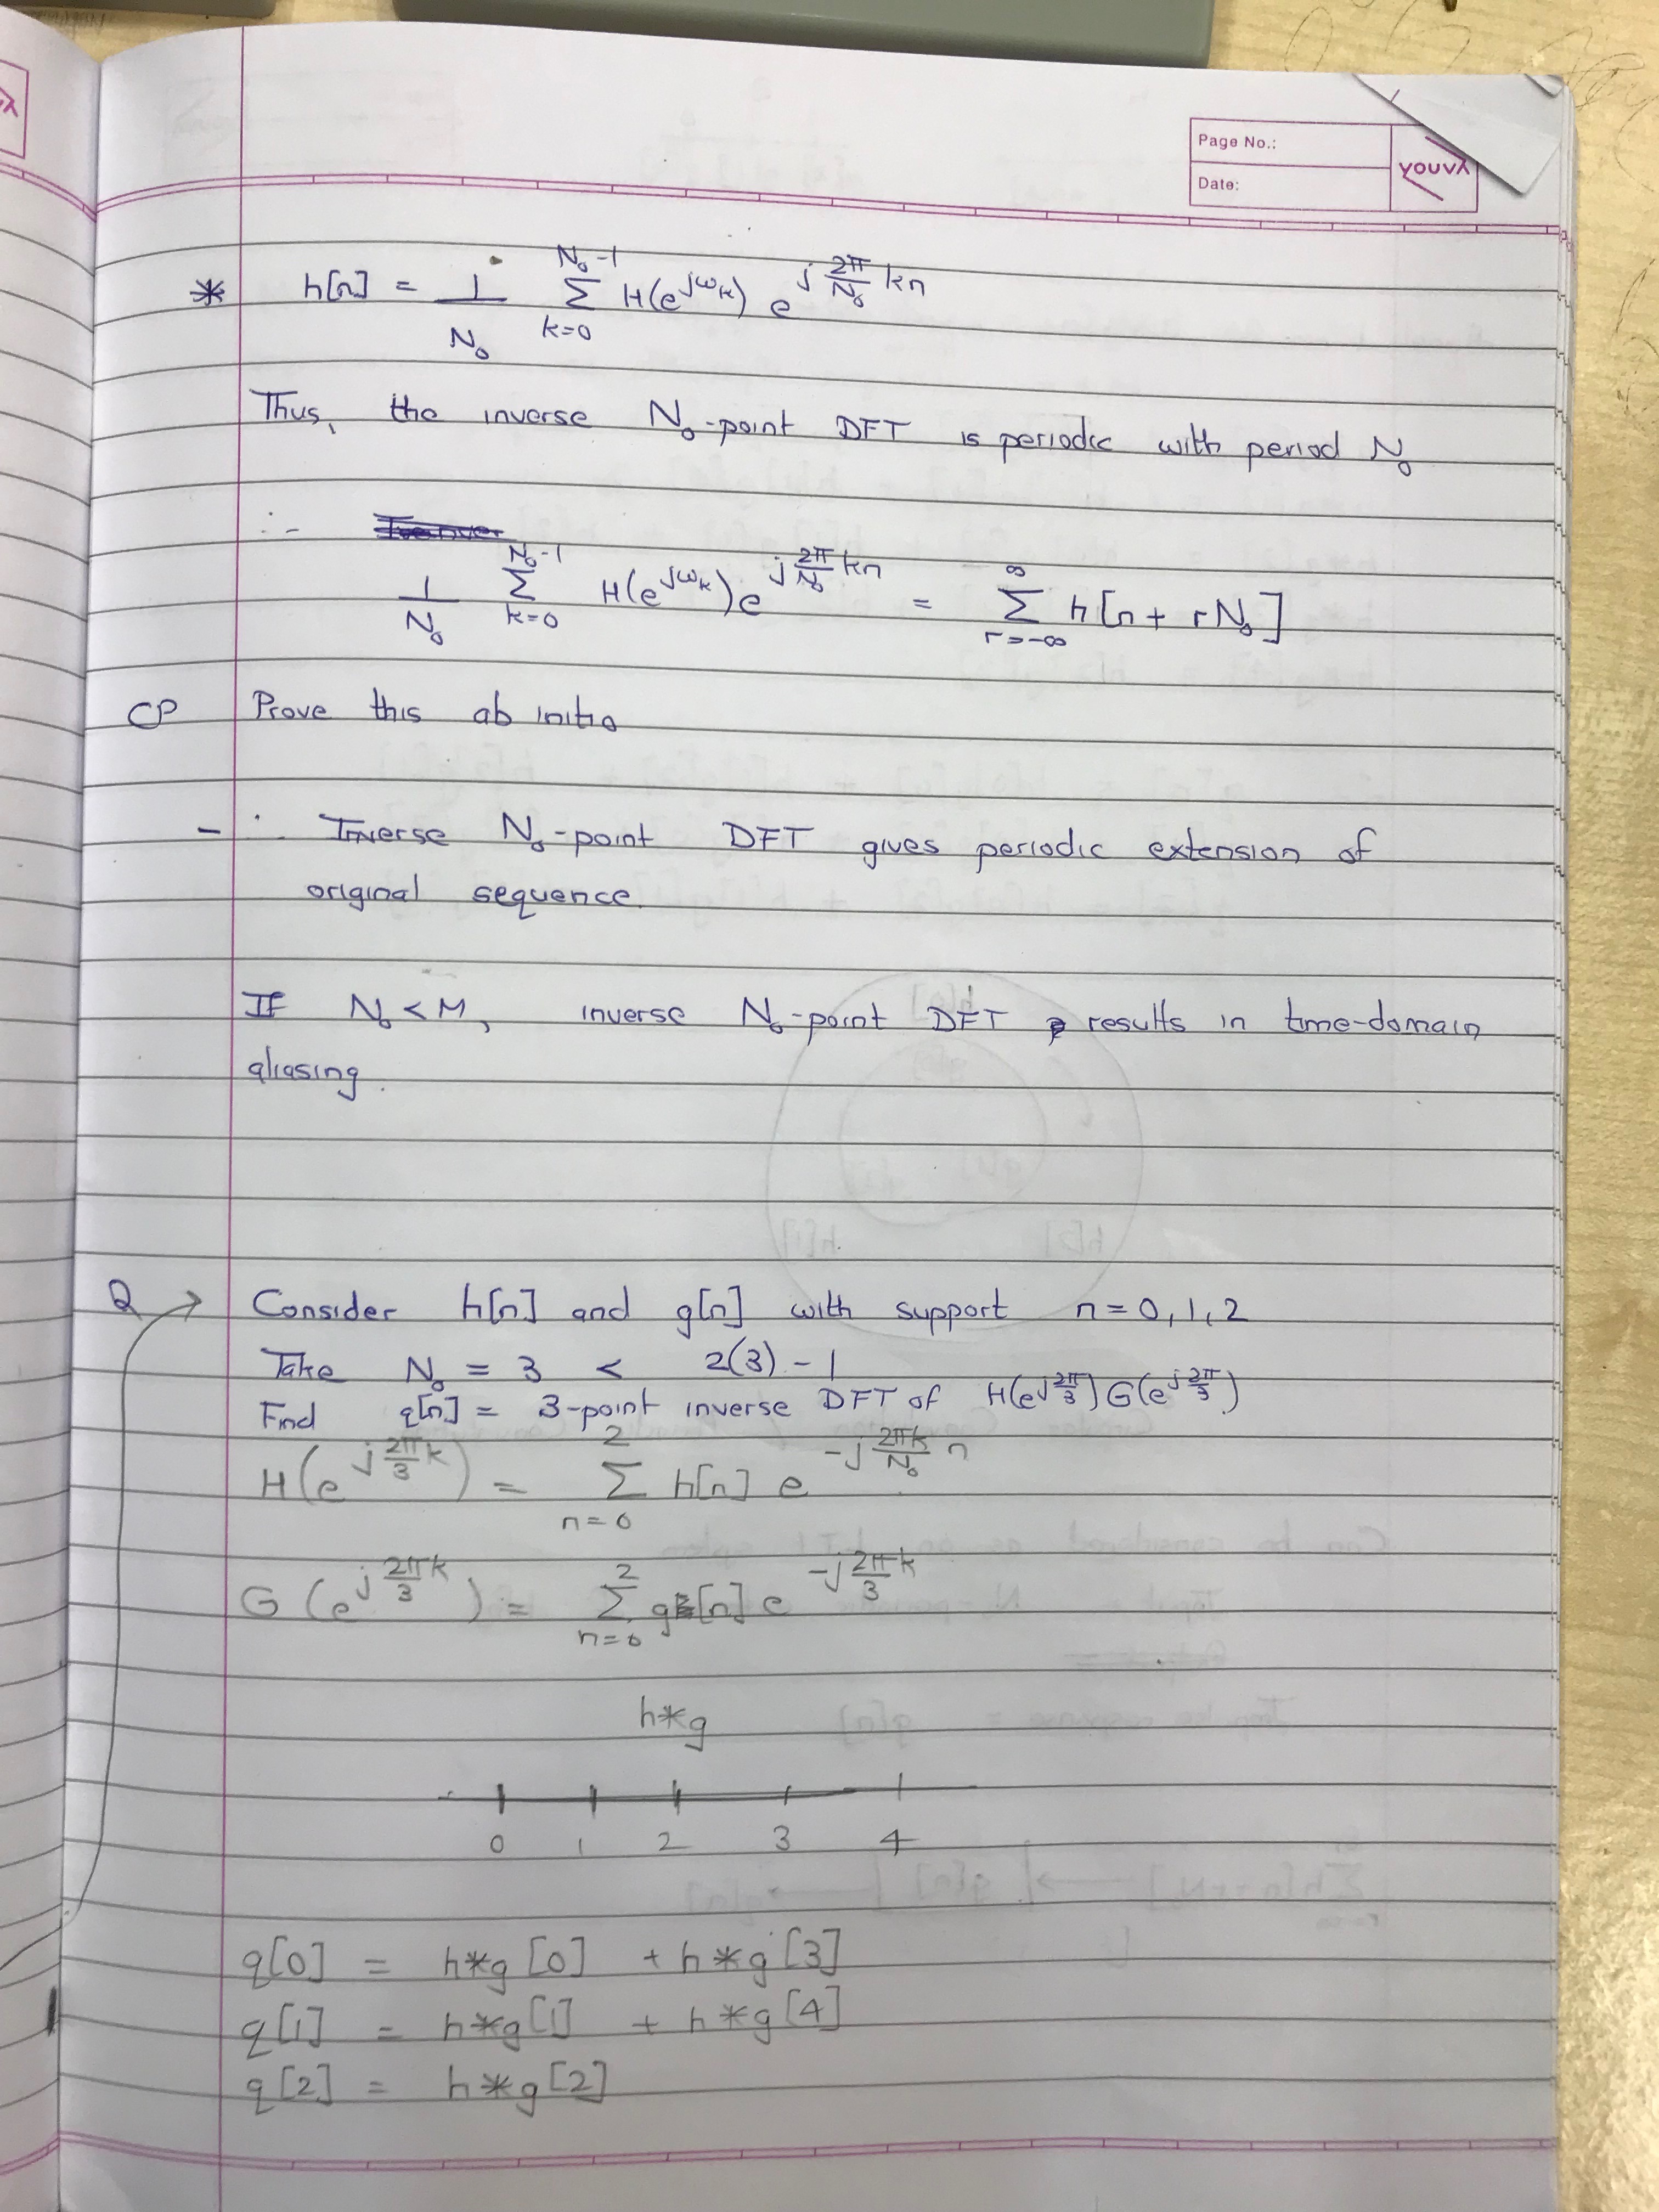 Page No.:
Date:
youva
* h[n] = 1/N₀ Σ_{k=0}^{N₀-1} H(e^{jω_k}) e^{j 2π/N₀ kn}
Thus, the inverse N₀-point DFT is periodic with period N₀
∴
1/N₀ Σ_{k=0}^{N₀-1} H(e^{jω_k}) e^{j 2π/N₀ kn} = Σ_{r=-∞}^{∞} h[n + rN₀]
CP Prove this ab initio
- ∴ Inverse N₀-point DFT gives periodic extension of
original sequence.
If N₀ < M, inverse N₀-point DFT results in time-domain
aliasing.
Q → Consider h[n] and g[n] with support n = 0, 1, 2
Take N₀ = 3 < 2(3) - 1
Find q[n] = 3-point inverse DFT of H(e^{j 2π/3}) G(e^{j 2π/3})
H(e^{j 2π/3 k}) = Σ_{n=0}^{2} h[n] e^{-j 2πk/N₀ n}
G(e^{j 2π/3 k}) = Σ_{n=0}^{2} g[n] e^{-j 2π/3 k}
h*g
0 1 2 3 4
q[0] = h*g[0] + h*g[3]
q[1] = h*g[1] + h*g[4]
q[2] = h*g[2]